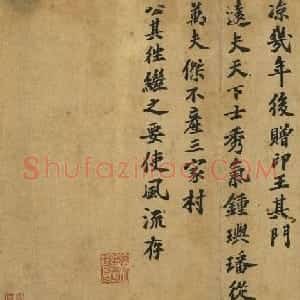 凉几年後贈印王其門
遠夫天下士秀氣鍾璵璠從
萬夫傑不產三家村
公其往繼之要使風流存
Shufazidian.com